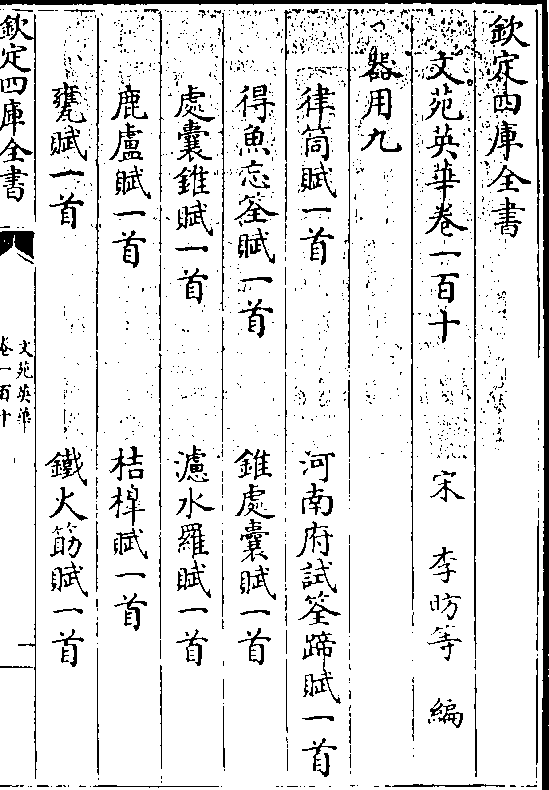 欽定四庫全書
文苑英華卷一百十
宋 李昉等 編
器用九
律筒賦一首
河南府試筌蹄賦一首
得魚忘筌賦一首
錐處囊賦一首
處囊錐賦一首
濾水羅賦一首
鹿盧賦一首
桔槔賦一首
甕賦一首
鐵火筯賦一首
欽定四庫全書
文苑英華
卷一百十